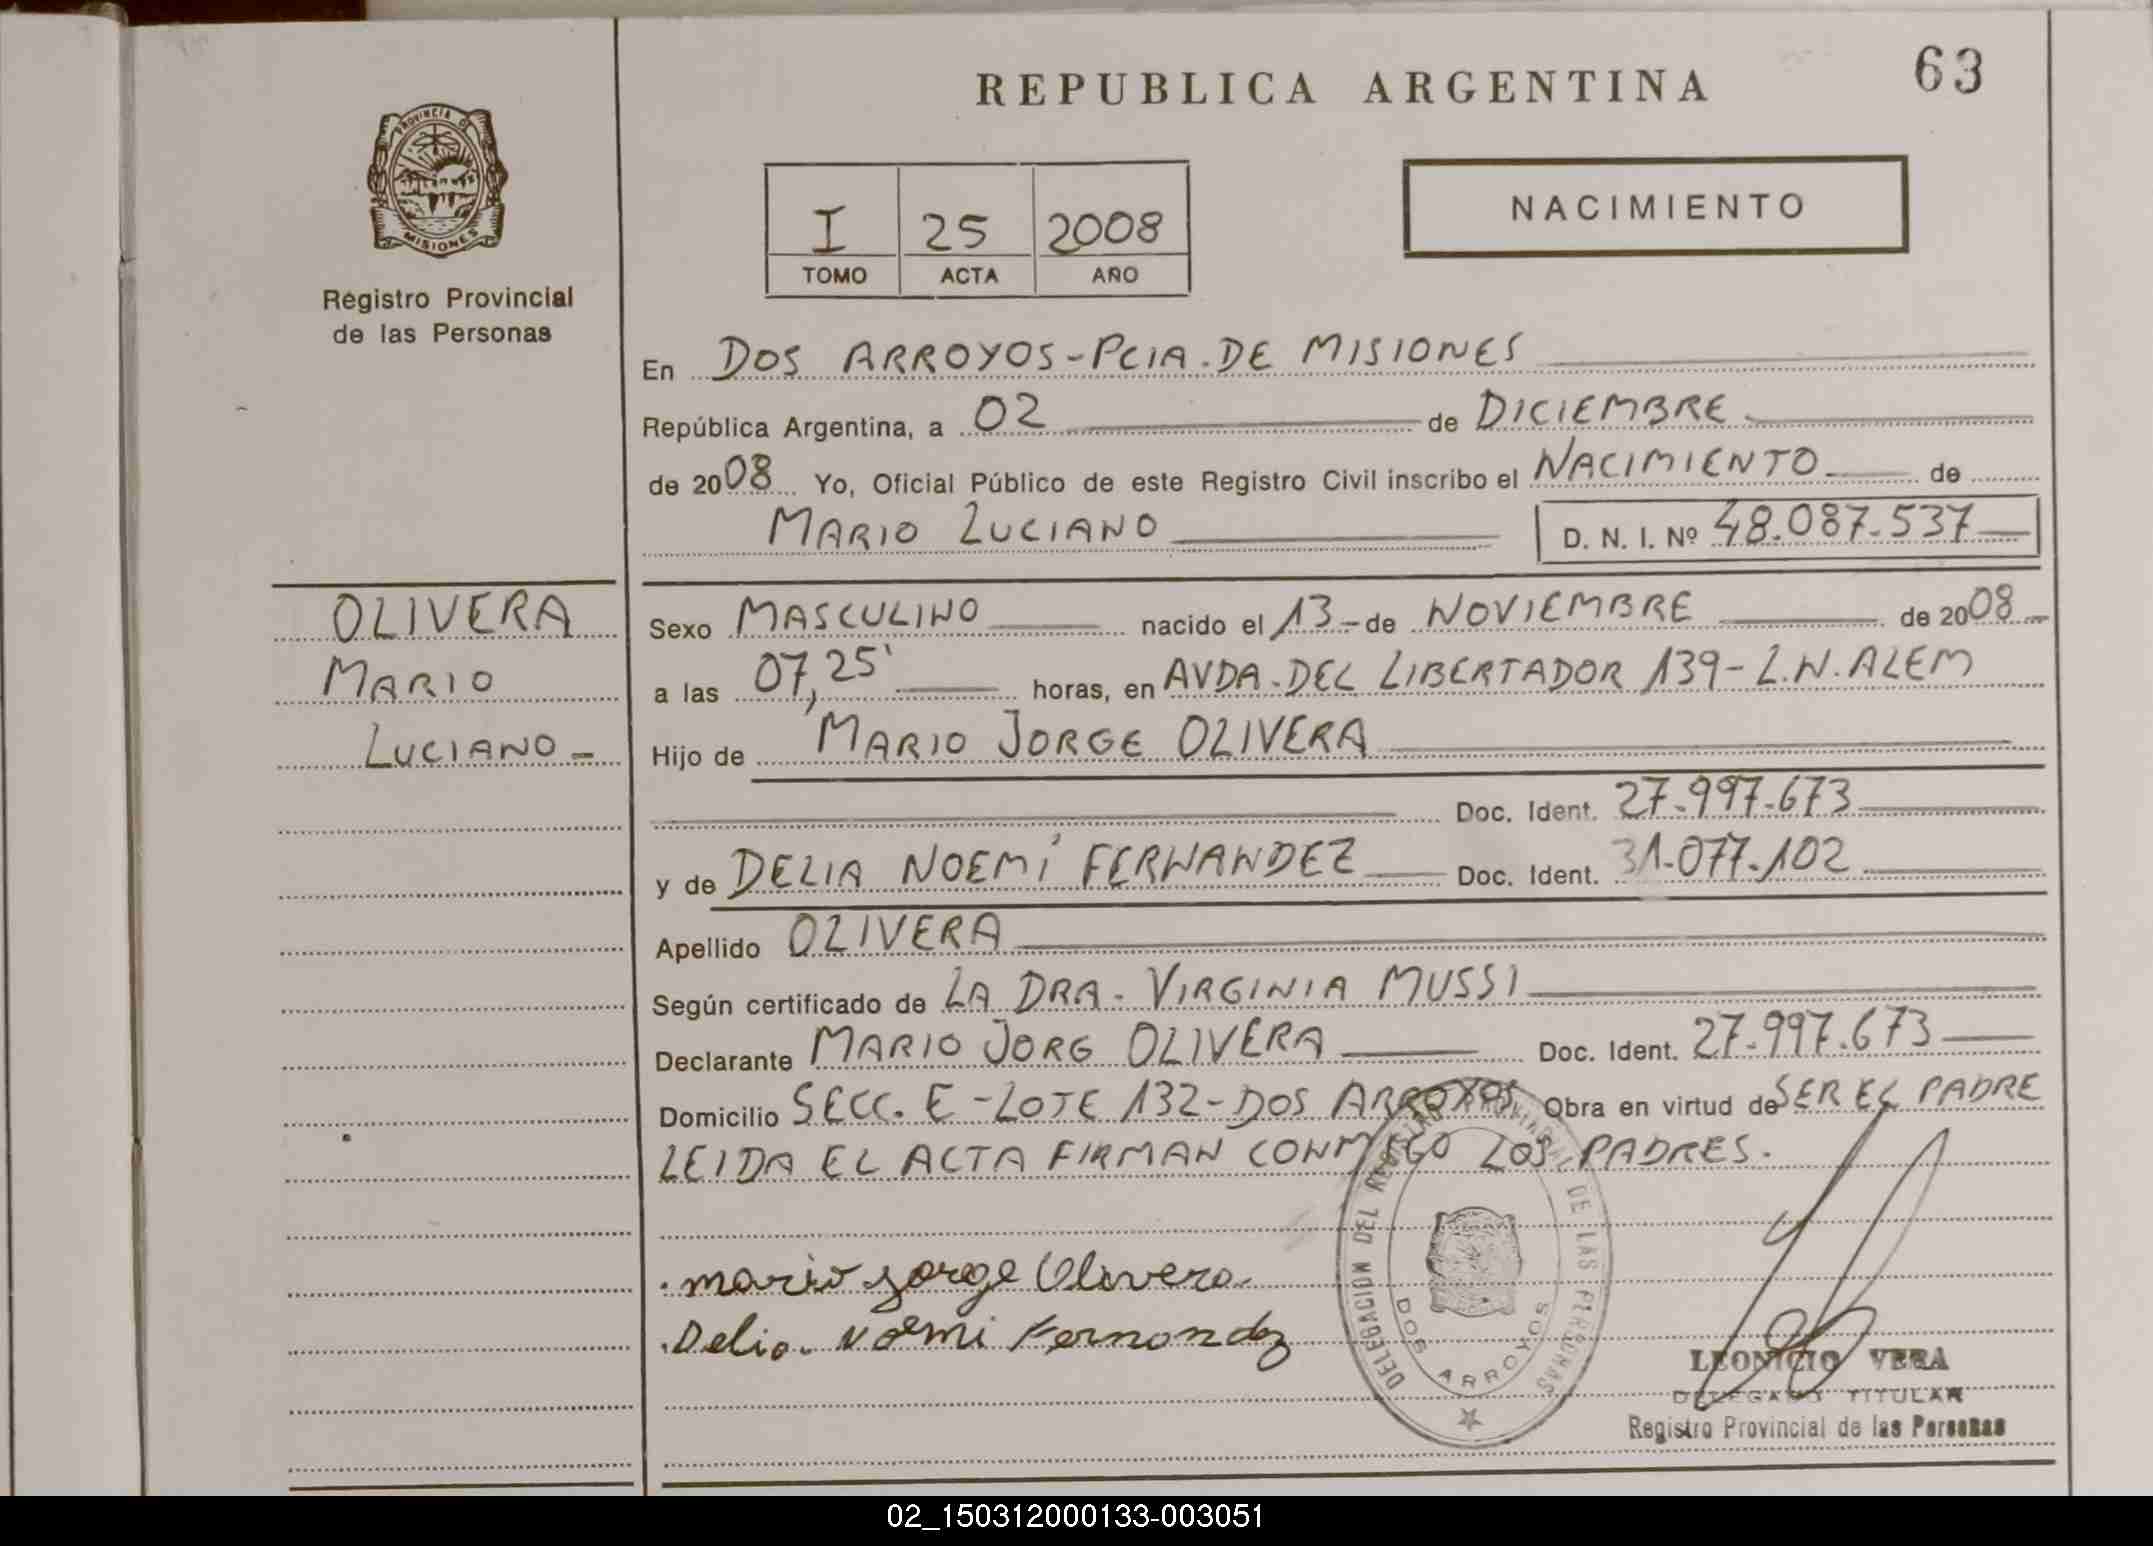 REPUBLICA ARGENTINA
63
PROVINCIA DE
MISIONES
Registro Provincial
de las Personas
I 25 2008
TOMO ACTA AÑO
NACIMIENTO
En DOS ARROYOS-PCIA.DE MISIONES
República Argentina, a 02 de DICIEMBRE
de 2008 Yo, Oficial Público de este Registro Civil inscribo el NACIMIENTO de
MARIO LUCIANO D. N. I. Nº 48.087.537
OLIVERA
MARIO
LUCIANO-
Sexo MASCULINO nacido el 13-de NOVIEMBRE de 2008
a las 07,25' horas, en AVDA.DEL LIBERTADOR 139-L.N.ALEM
Hijo de MARIO JORGE OLIVERA
Doc. Ident. 27.997.673
y de DELIA NOEMÍ FERNANDEZ Doc. Ident. 31.077.102
Apellido OLIVERA
Según certificado de LA DRA. VIRGINIA MUSSI
Declarante MARIO JORG OLIVERA Doc. Ident. 27.997.673
Domicilio SECC. E-LOTE 132-DOS ARROYOS Obra en virtud de SER EL PADRE
LEIDA EL ACTA FIRMAN CONMIGO LOS PADRES.
mario jorge Olivera.
Delia. Noemi Fernandez
DELEGACION DEL REGISTRO PROVINCIAL DE LAS PERSONAS
DOS ARROYOS
LEONICIO VERA
DELEGADO TITULAR
Registro Provincial de las Personas
02_150312000133-003051